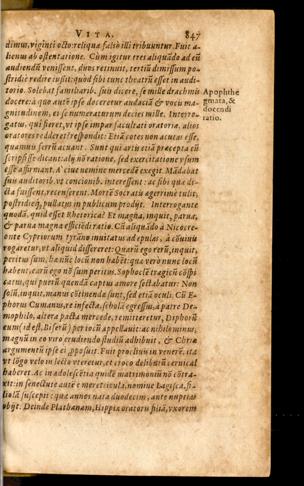 VITA. 847
dimus, viginti octo: reliqua falsò illi tribuuntur. Fuit a-
lienus ab ostentatione. Cùm igitur tres aliquãdo ad eũ
audiendũ venissent, duos retinuit, tertiũ dimissum po-
stridie redire iussit: quòd sibi tunc theatrũ esset in audi-
torio. Solebat familiarib. suis dicere, se mille drachmis
docere: à quo autẽ ipse doceretur audaciã & vocis ma-
gnitudinem, ei se numeraturum decies mille. Interro-
gatus, qui fieret, vt ipse impar facultati oratoriæ, alios
oratores redderet: respondit: Etiã cotes non acutas esse,
quamuis ferrũ acuant. Sunt qui artis etiã præcepta eũ
scripsisse dicant: alij nõ ratione, sed exercitatione vsum
esse affirmant. A ciue nemine mercedẽ exegit. Mãdabat
suis auditorib. vt concionib. interessent: ac sibi quæ di-
cta fuissent, recenserent. Morte Socratis ægerrimè tulit,
postridieq́; pullatus in publicum prodijt. Interrogante
quodã, quid esset Rhetorica? Et magna, inquit, parua,
& parua magna efficiẽdi ratio. Cũ aliquãdo à Nicocre-
onte Cypriorum tyrãno inuitatus ad epulas, à cõuiuis
rogaretur, vt aliquid dissereret: Quarũ ego rerũ, inquit,
peritus sum, has nũc locũ non habẽt: quæ verò nunc locũ
habent, earũ ego nõ sum peritus. Sophoclẽ tragicũ cõspi
catus, qui puerũ quendã captus amore sectabatur: Non
solũ, inquit, manus cõtinendæ sunt, sed etiã oculi. Cũ E-
phorus Cumanus, re infecta, scholã egressus, à patre De-
mophilo, altera pacta mercede, remitteretur, Diphorũ
eum (id est, Biferũ) per iocũ appellauit: ac nihilominus,
magnũ in eo viro erudiendo studiũ adhibuit, & Chriæ
argumentũ ipse ei proposuit. Fuit procliuis in venerẽ, ita
vt lõgo velo in lecto vteretur, et croco delibutũ ceruical
haberet. Ac in adolescẽtia quidẽ matrimoniũ nõ cõtra-
xit: in senectute autẽ è meretricula, nomine Lagisca, fi-
liolã suscepit: quæ annos nata duodecim, ante nuptias
obijt. Deinde Plathanam, Hippiæ oratoris filiã, vxorem
Apophthe
gmata, &
docendi
ratio.